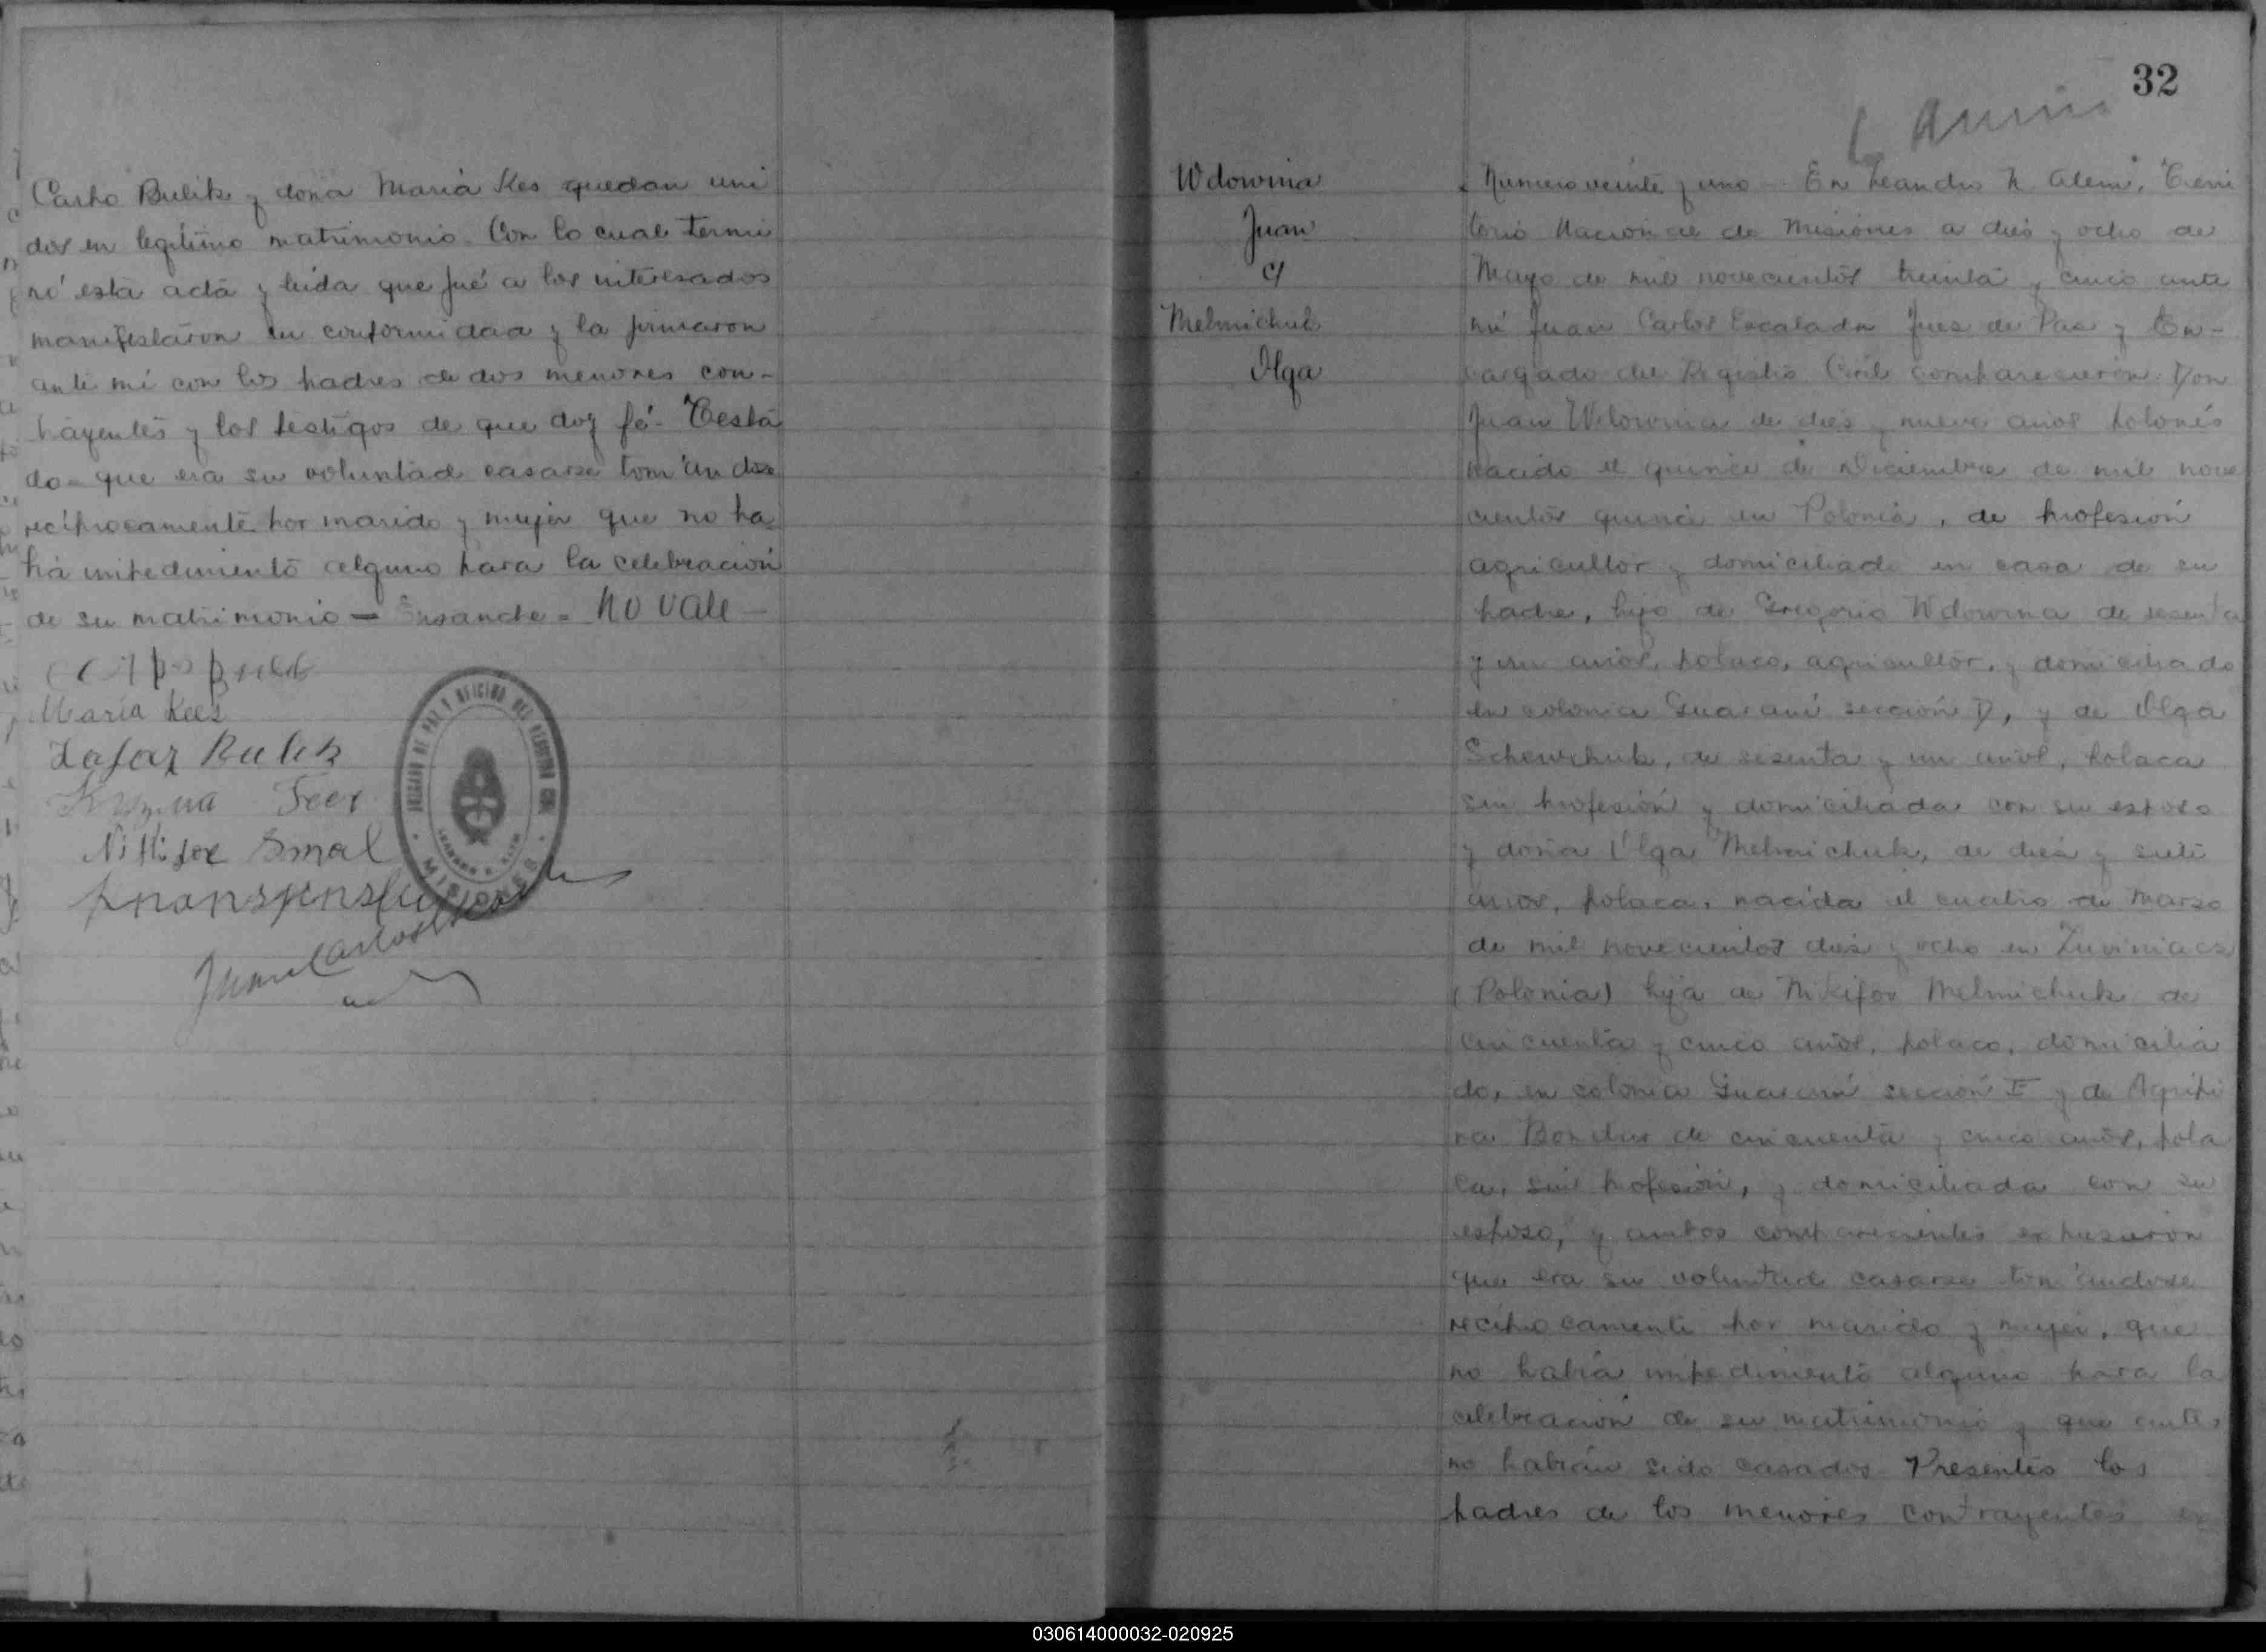 Carho Bulik y doña María Kes quedan uni
dos en legítimo matrimonio. Con lo cual termi
nó esta acta y leída que fué a los interesados
manifestaron su conformidad y la firmaron
ante mí con los padres de dos menores con-
trayentes y los testigos de que doy fé. Testa
do = que era su voluntad casarse tomándose
recíprocamente por marido y mujer que no ha
bía impedimento alguno para la celebración
de su matrimonio = = No vale
María Kees
Lasaz Bulik
Feer
Smal
Juan Carlos
JUZGADO DE PAZ Y OFICINA DEL REGISTRO CIVIL
MISIONES
32
Wdowina
Juan
c/
Melnichuk
Olga
Numero veinte y uno - En Leandro N. Alem, Terri
torio Nacional de Misiones a diés y ocho de
Mayo de mil novecientos treinta y cinco ante
mí Juan Carlos Escalada Juez de Paz y En-
cargado del Registro Civil comparecieron: Don
Juan Wdowina de diés y nueve años polonés
nacido el quince de Diciembre de mil nove
cientos quince en Polonia, de profesión
agricultor y domiciliado en casa de su
padre, hijo de Gregorio Wdowina de sesenta
y un años, polaco, agricultor, y domiciliado
en colonia Guaraní sección D, y de Olga
Schewchuk, de sesenta y un años, polaca
sin profesión y domiciliada con su esposo
y doña Olga Melnichuk, de diés y siete
años, polaca, nacida el cuatro de Marzo
de mil novecientos diés y ocho en
(Polonia) hija de Nikifor Melnichuk de
cincuenta y cinco años, polaco, domicilia
do, en colonia Guaraní sección E y de Agripi
na Bondar de cincuenta y cinco años, pola
ca, sin profesión, y domiciliada con su
esposo, y ambos comparecientes expusieron
que era su voluntad casarse tomándose
recíprocamente por marido y mujer, que
no había impedimento alguno para la
celebración de su matrimonio y que antes
no habían sido casados. Presentes los
padres de los menores contrayentes
030614000032-020925